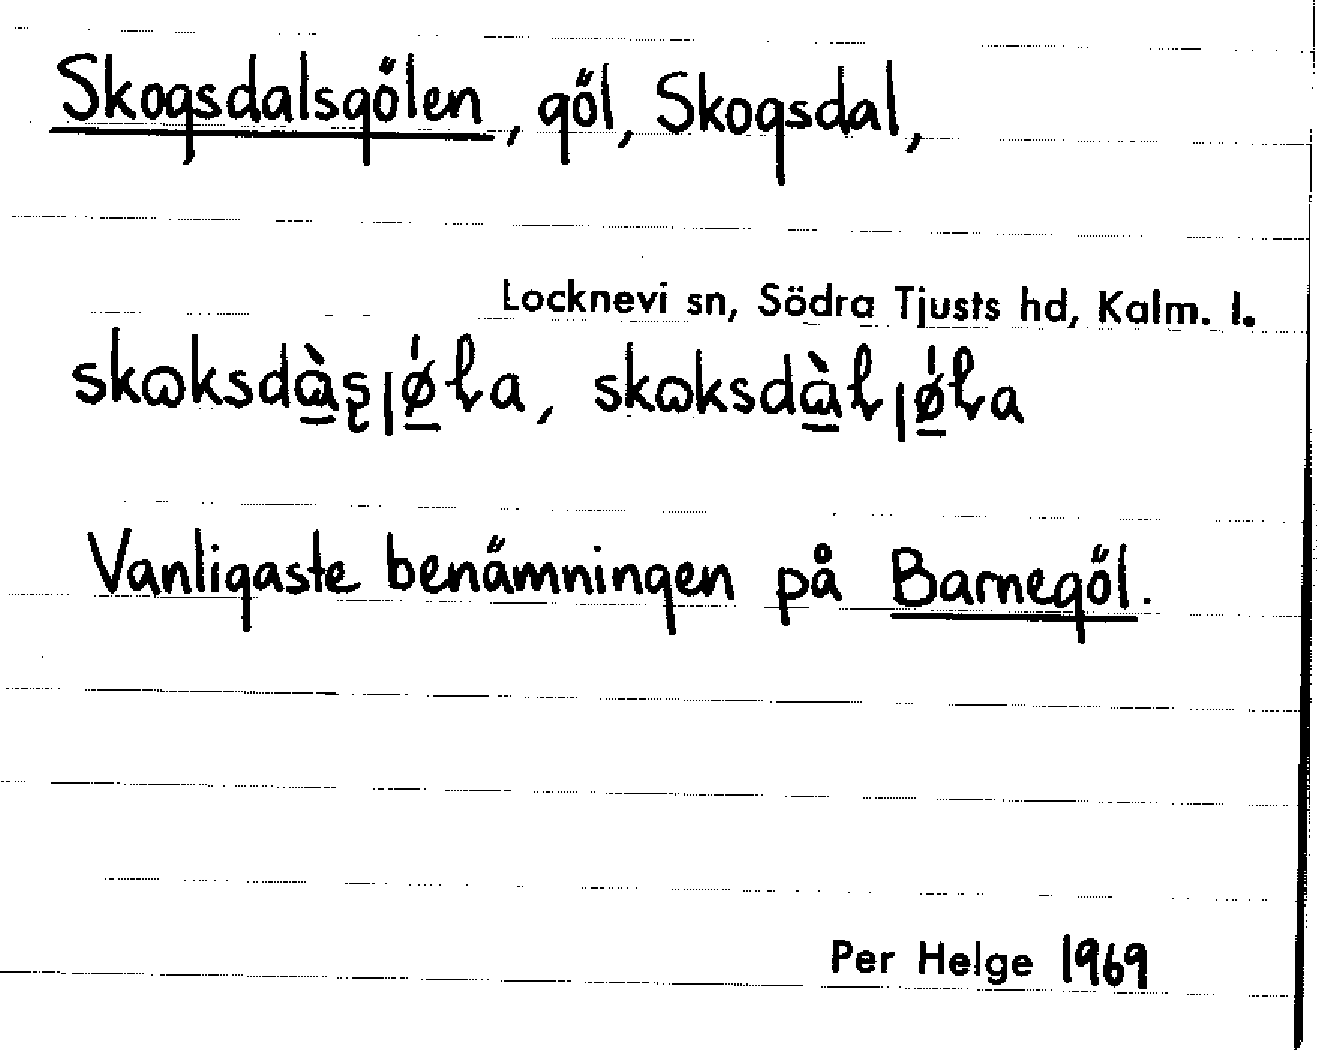 Skogsdalsgölen, göl, Skogsdal,
Locknevi sn, Södra Tjusts hd, Kalm. l.
skɷksdɑ̠̀ʂȷǿ̠ɫa, skɷksdɑ̠̀ɫȷǿ̠ɫa
Vanligaste benämningen på Barnegöl.
Per Helge 1969